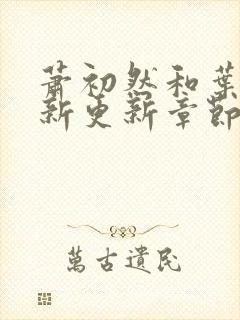 萧初然和葉
新更新章節
萬古遺民